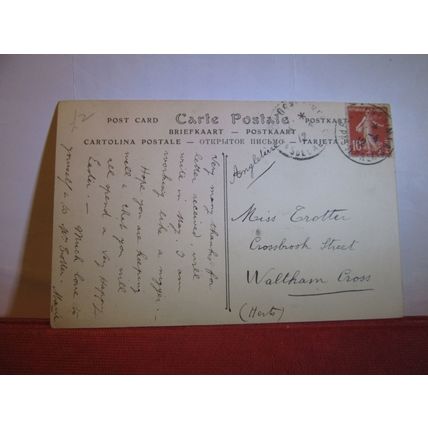 POST CARD Carte Postale POSTKARTE
BRIEFKAART — POSTKAART
CARTOLINA POSTALE — ОТКРЫТОЕ ПИСЬМО — TARJETA
(Angleterre)
Miss Trotter
Crossbrook Street
Waltham Cross
(Herts)
Very many thanks for
letter received, will
write in May. I am
working like a nigger. —
Hope you are keeping
well & that you will
all spend a very happy
Easter. — Much love to
yourself & to Mrs Trotter. Marie